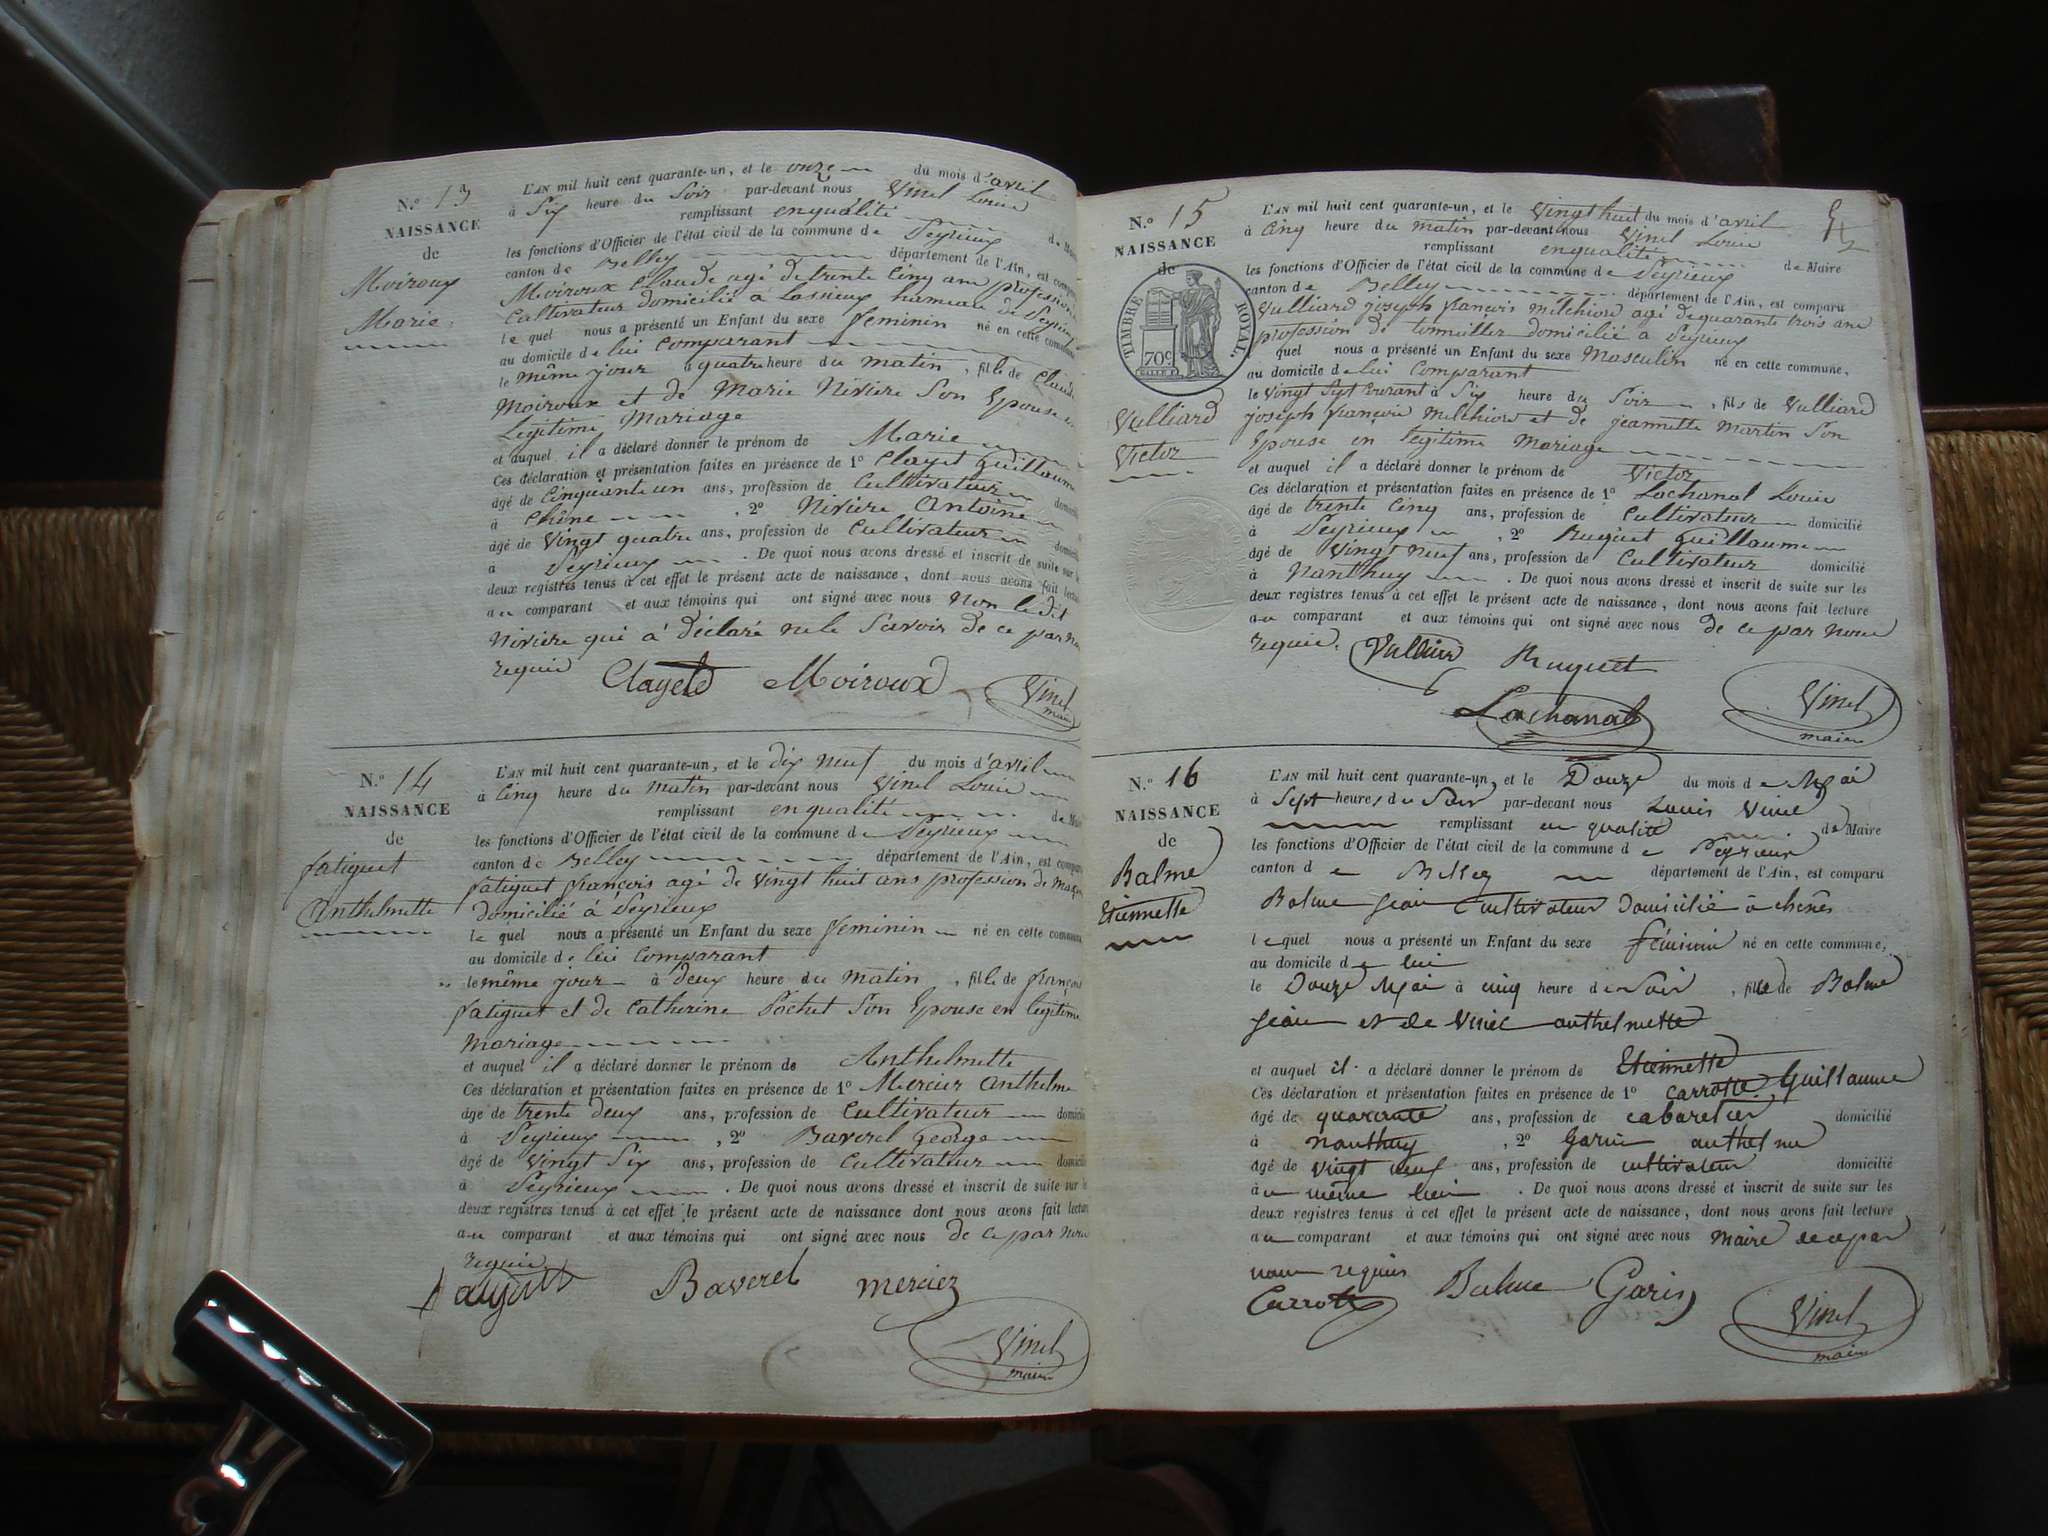 N.º 13
NAISSANCE
de
Moiroux
Marie
L'AN mil huit cent quarante-un, et le onze du mois d'avril
à Six heure du Soir par-devant nous Vinel Louis
remplissant enqualité de
les fonctions d'Officier de l'état civil de la commune de Peyrieux
canton de Belley département de l'Ain, est
Moiroux Claude agé de trente Cinq ans profession
Cultivateur domicilié à Lassieux hameau de Peyrieux
le quel nous a présenté un Enfant du sexe feminin né en cette
au domicile de lui Comparant
le même jour à quatre heure du matin, fille de Claude
Moiroux et de Marie Nivière Son Epouse en
Legitime Mariage
et auquel il a déclaré donner le prénom de Marie
Ces déclaration et présentation faites en présence de 1º Clayet Guillaume
âgé de Cinquante un ans, profession de Cultivateur
à Chêne, 2º Nivière Antoine
âgé de Vingt quatre ans, profession de Cultivateur
à Peyrieux. De quoi nous avons dressé et inscrit de suite sur
deux registres tenus à cet effet le présent acte de naissance, dont nous avons fait
au comparant et aux témoins qui ont signé avec nous Non ledit
Nivière qui a déclaré nele Savoir de ce par
requis Clayet Moiroux Vinel
maire
N.º 14
NAISSANCE
de
fatiguet
Anthelmette
L'AN mil huit cent quarante-un, et le dix neuf du mois d'avril
à Cinq heure du matin par-devant nous Vinel Louis
remplissant enqualité de
les fonctions d'Officier de l'état civil de la commune de Peyrieux
canton de Belley département de l'Ain, est
fatiguet françois agé de Vingt huit ans profession de
domicilié à Peyrieux
le quel nous a présenté un Enfant du sexe feminin né en cette
au domicile de lui Comparant
le même jour à deux heure du matin, fille de françois
fatiguet et de Catherine Pochet Son Epouse en legitime
Mariage
et auquel il a déclaré donner le prénom de Anthelmette
Ces déclaration et présentation faites en présence de 1º Mercier Anthelme
âgé de trente deux ans, profession de Cultivateur
à Peyrieux, 2º Baverel George
âgé de Vingt Six ans, profession de Cultivateur
à Peyrieux. De quoi nous avons dressé et inscrit de suite sur
deux registres tenus à cet effet le présent acte de naissance dont nous avons fait
au comparant et aux témoins qui ont signé avec nous de ce par Nous
requis
Baverel mercier
Vinel
maire
N.º 15
NAISSANCE
de
TIMBRE ROYAL.
70c
Vulliard
Victor
L'AN mil huit cent quarante-un, et le Vingt huit du mois d'avril
à Cinq heure du matin par-devant nous Vinel Louis
remplissant enqualité de Maire
les fonctions d'Officier de l'état civil de la commune de Peyrieux
canton de Belley département de l'Ain, est comparu
Vulliard joseph françois Melchiord agé dequarante trois ans
profession de tonnellier domicilié à Peyrieux
quel nous a présenté un Enfant du sexe Masculin né en cette commune,
au domicile de lui Comparant
le Vingt Sept Courant à Six heure du Soir, fils de Vulliard
joseph françois Melchiord et de jeannette Martin Son
Epouse en legitime Mariage
et auquel il a déclaré donner le prénom de Victor
Ces déclaration et présentation faites en présence de 1º Lachanal Louis
âgé de trente Cinq ans, profession de Cultivateur domicilié
à Peyrieux, 2º Ruguet Guillaume
âgé de Vingt neuf ans, profession de Cultivateur domicilié
à Nanthuy. De quoi nous avons dressé et inscrit de suite sur les
deux registres tenus à cet effet le présent acte de naissance, dont nous avons fait lecture
au comparant et aux témoins qui ont signé avec nous de ce par Nous
requis. Ruguet
Lachanal Vinel
maire
N.º 16
NAISSANCE
de
Balme
Etiennette
L'AN mil huit cent quarante-un, et le Douze du mois de Mai
à Sept heures du Soir par-devant nous Louis Vinel
remplissant en qualité de Maire
les fonctions d'Officier de l'état civil de la commune de Peyrieux
canton de Belley département de l'Ain, est comparu
Balme Jean Cultivateur Domicilié à chênes
lequel nous a présenté un Enfant du sexe féminin né en cette commune,
au domicile de lui
le Douze Mai à cinq heure du Soir, fille de Balme
Jean et de Vinel anthelmette
et auquel il a déclaré donner le prénom de Etiennette
Ces déclaration et présentation faites en présence de 1º Carrotte Guillaume
âgé de quarante ans, profession de cabaretier domicilié
à Nanthuy, 2º Garin anthelme
âgé de vingt neuf ans, profession de cultivateur domicilié
au même lieu. De quoi nous avons dressé et inscrit de suite sur les
deux registres tenus à cet effet le présent acte de naissance, dont nous avons fait lecture
au comparant et aux témoins qui ont signé avec nous Maire de ce par
nous requis
Carrotte Balme Garin Vinel
maire